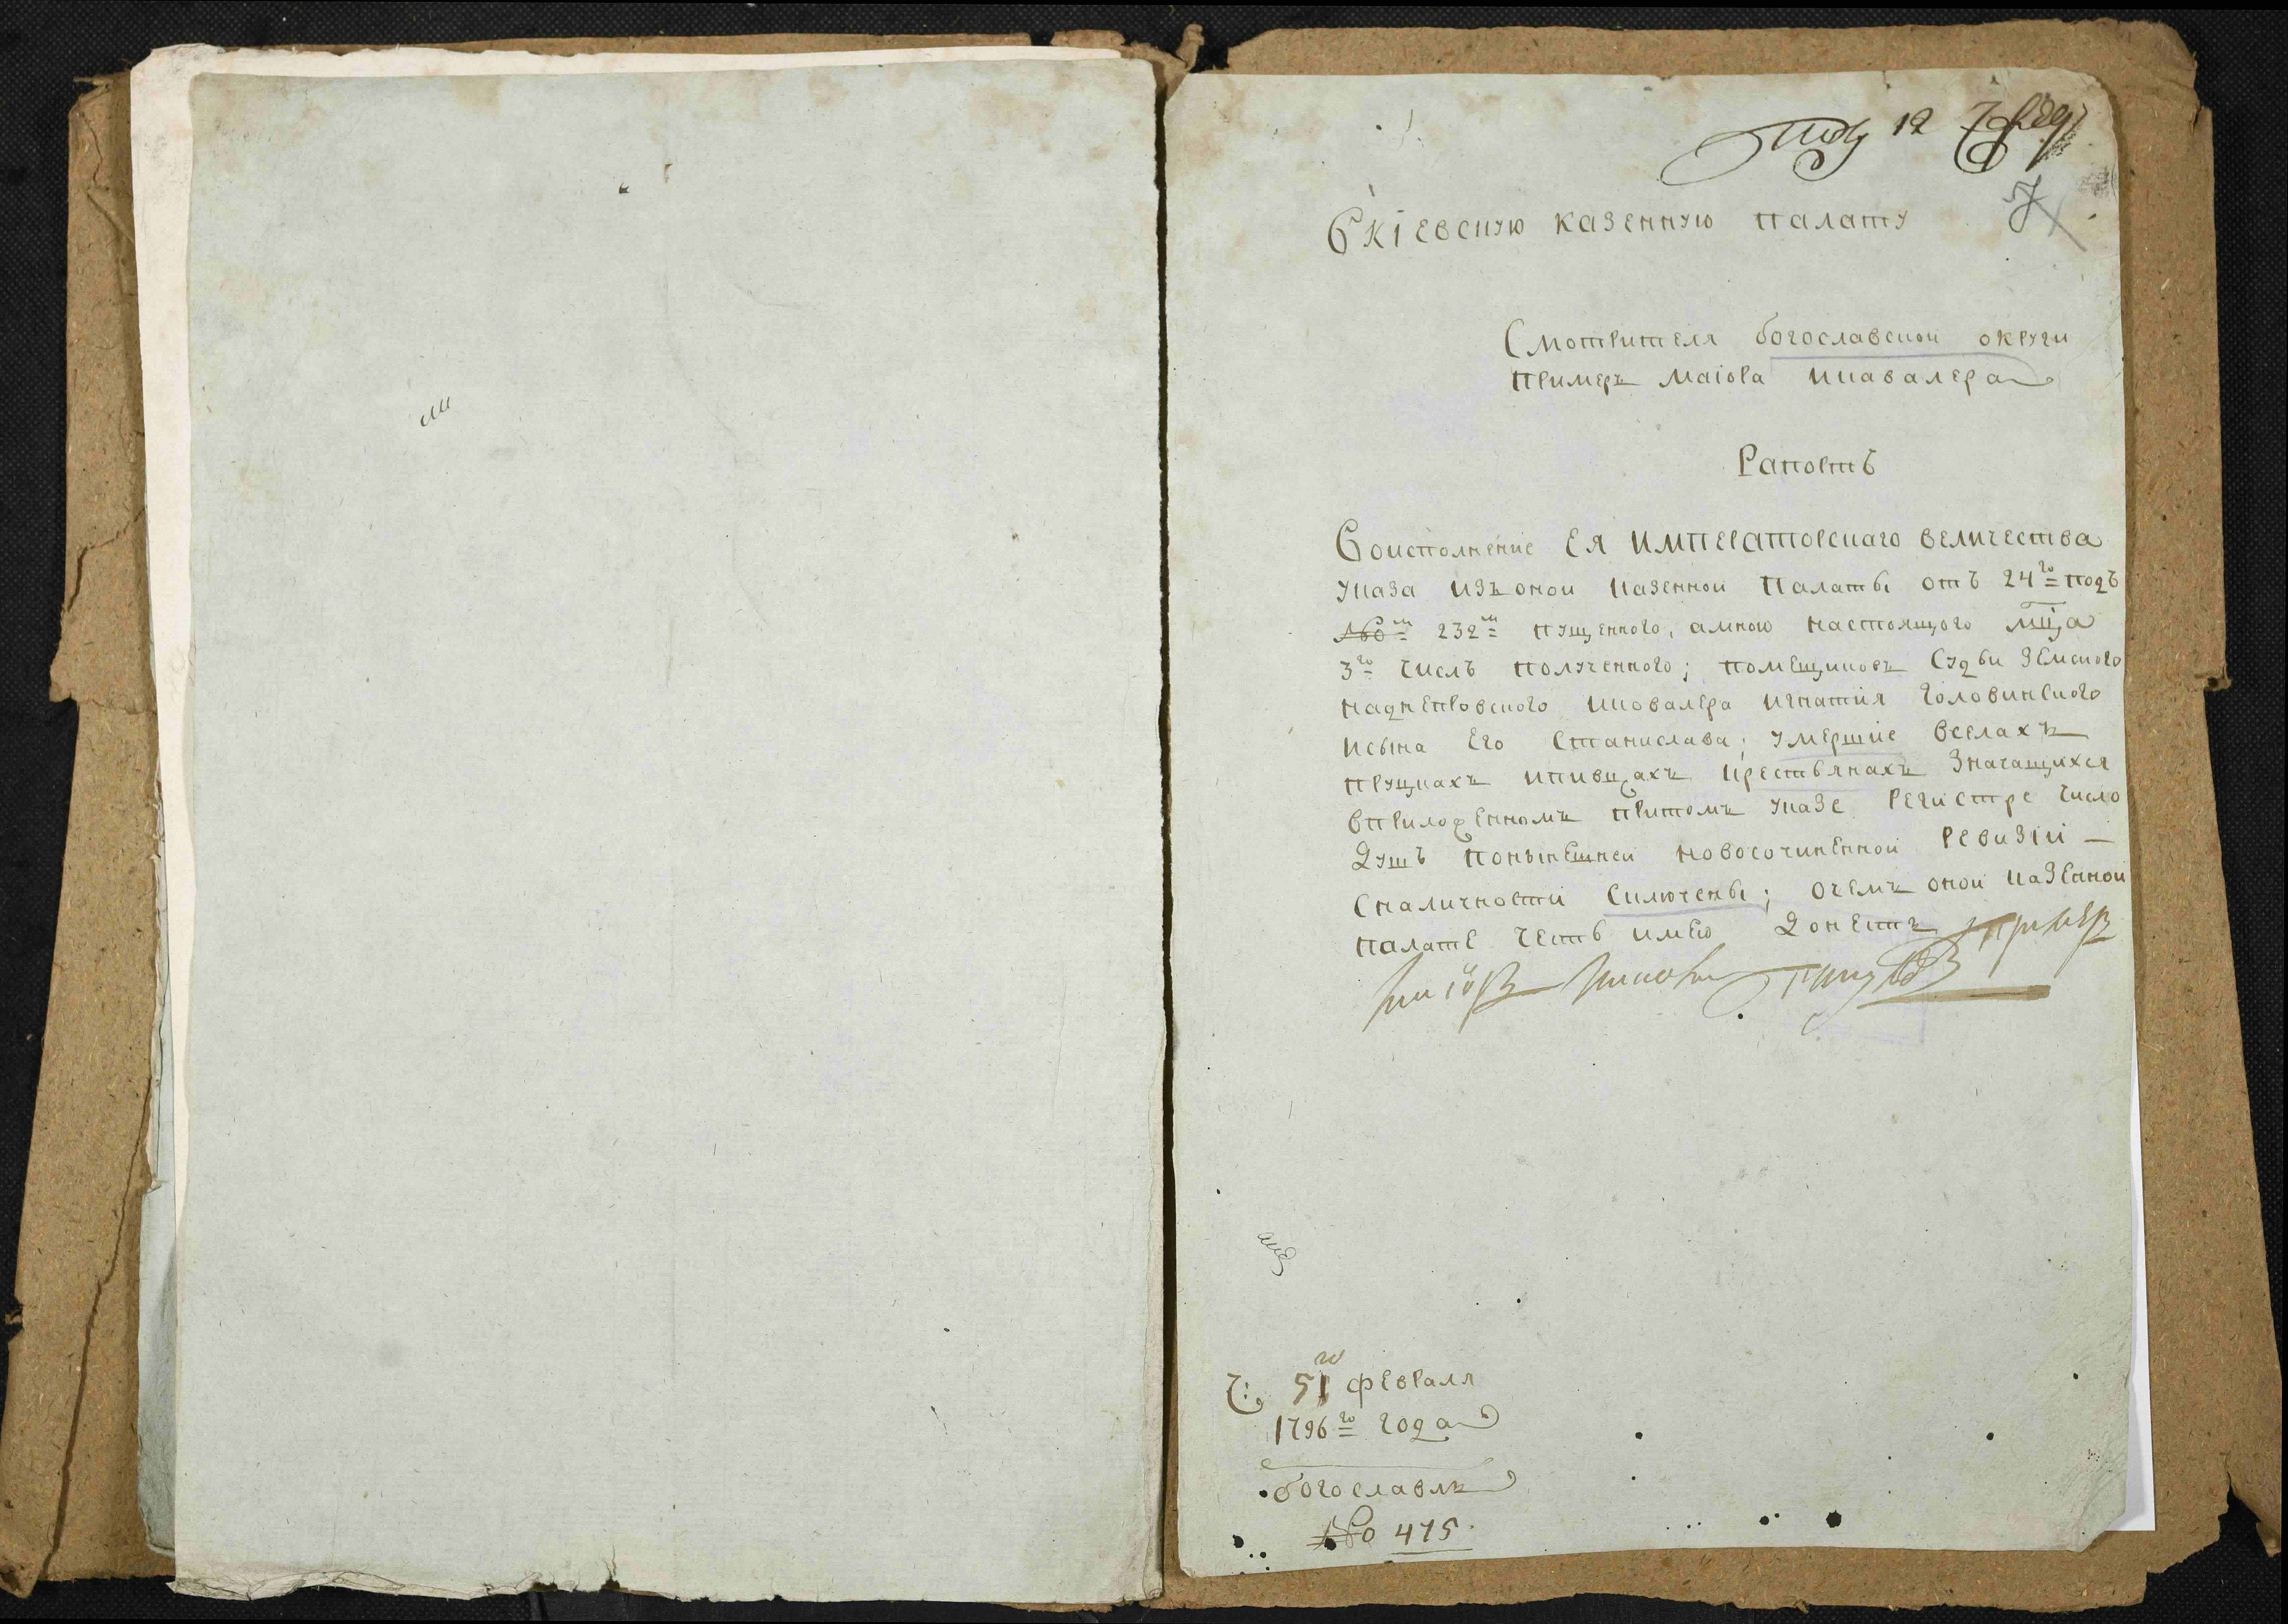 12
7
Вкіевскую казенную палату
Смотрителя богославской округи
Примеръ Маіора икавалера
Рапортъ
Воисполнение Ея Императорскаго величества
указа изъ оной казенной Палаты отъ 24го подъ
No м 232м пущенного, амною настоящого мца
3го числъ полученного; помещиковъ Судьи Земского
наднепровского иковалера игнатия головинского
исына Его Станислава; умершие вселахъ
прущкахъ ипивцахъ крестьянахъ Значащихся
вприложенномъ притомъ указе Регистре число
Душъ понынешней новосочиненной Ревизіи —
Сналичности Сключены; очемъ оной казенной
палате честь имею Донесть примеръ
маіоръ
ч: 5го февраля
1796го года
богославль
No 475.